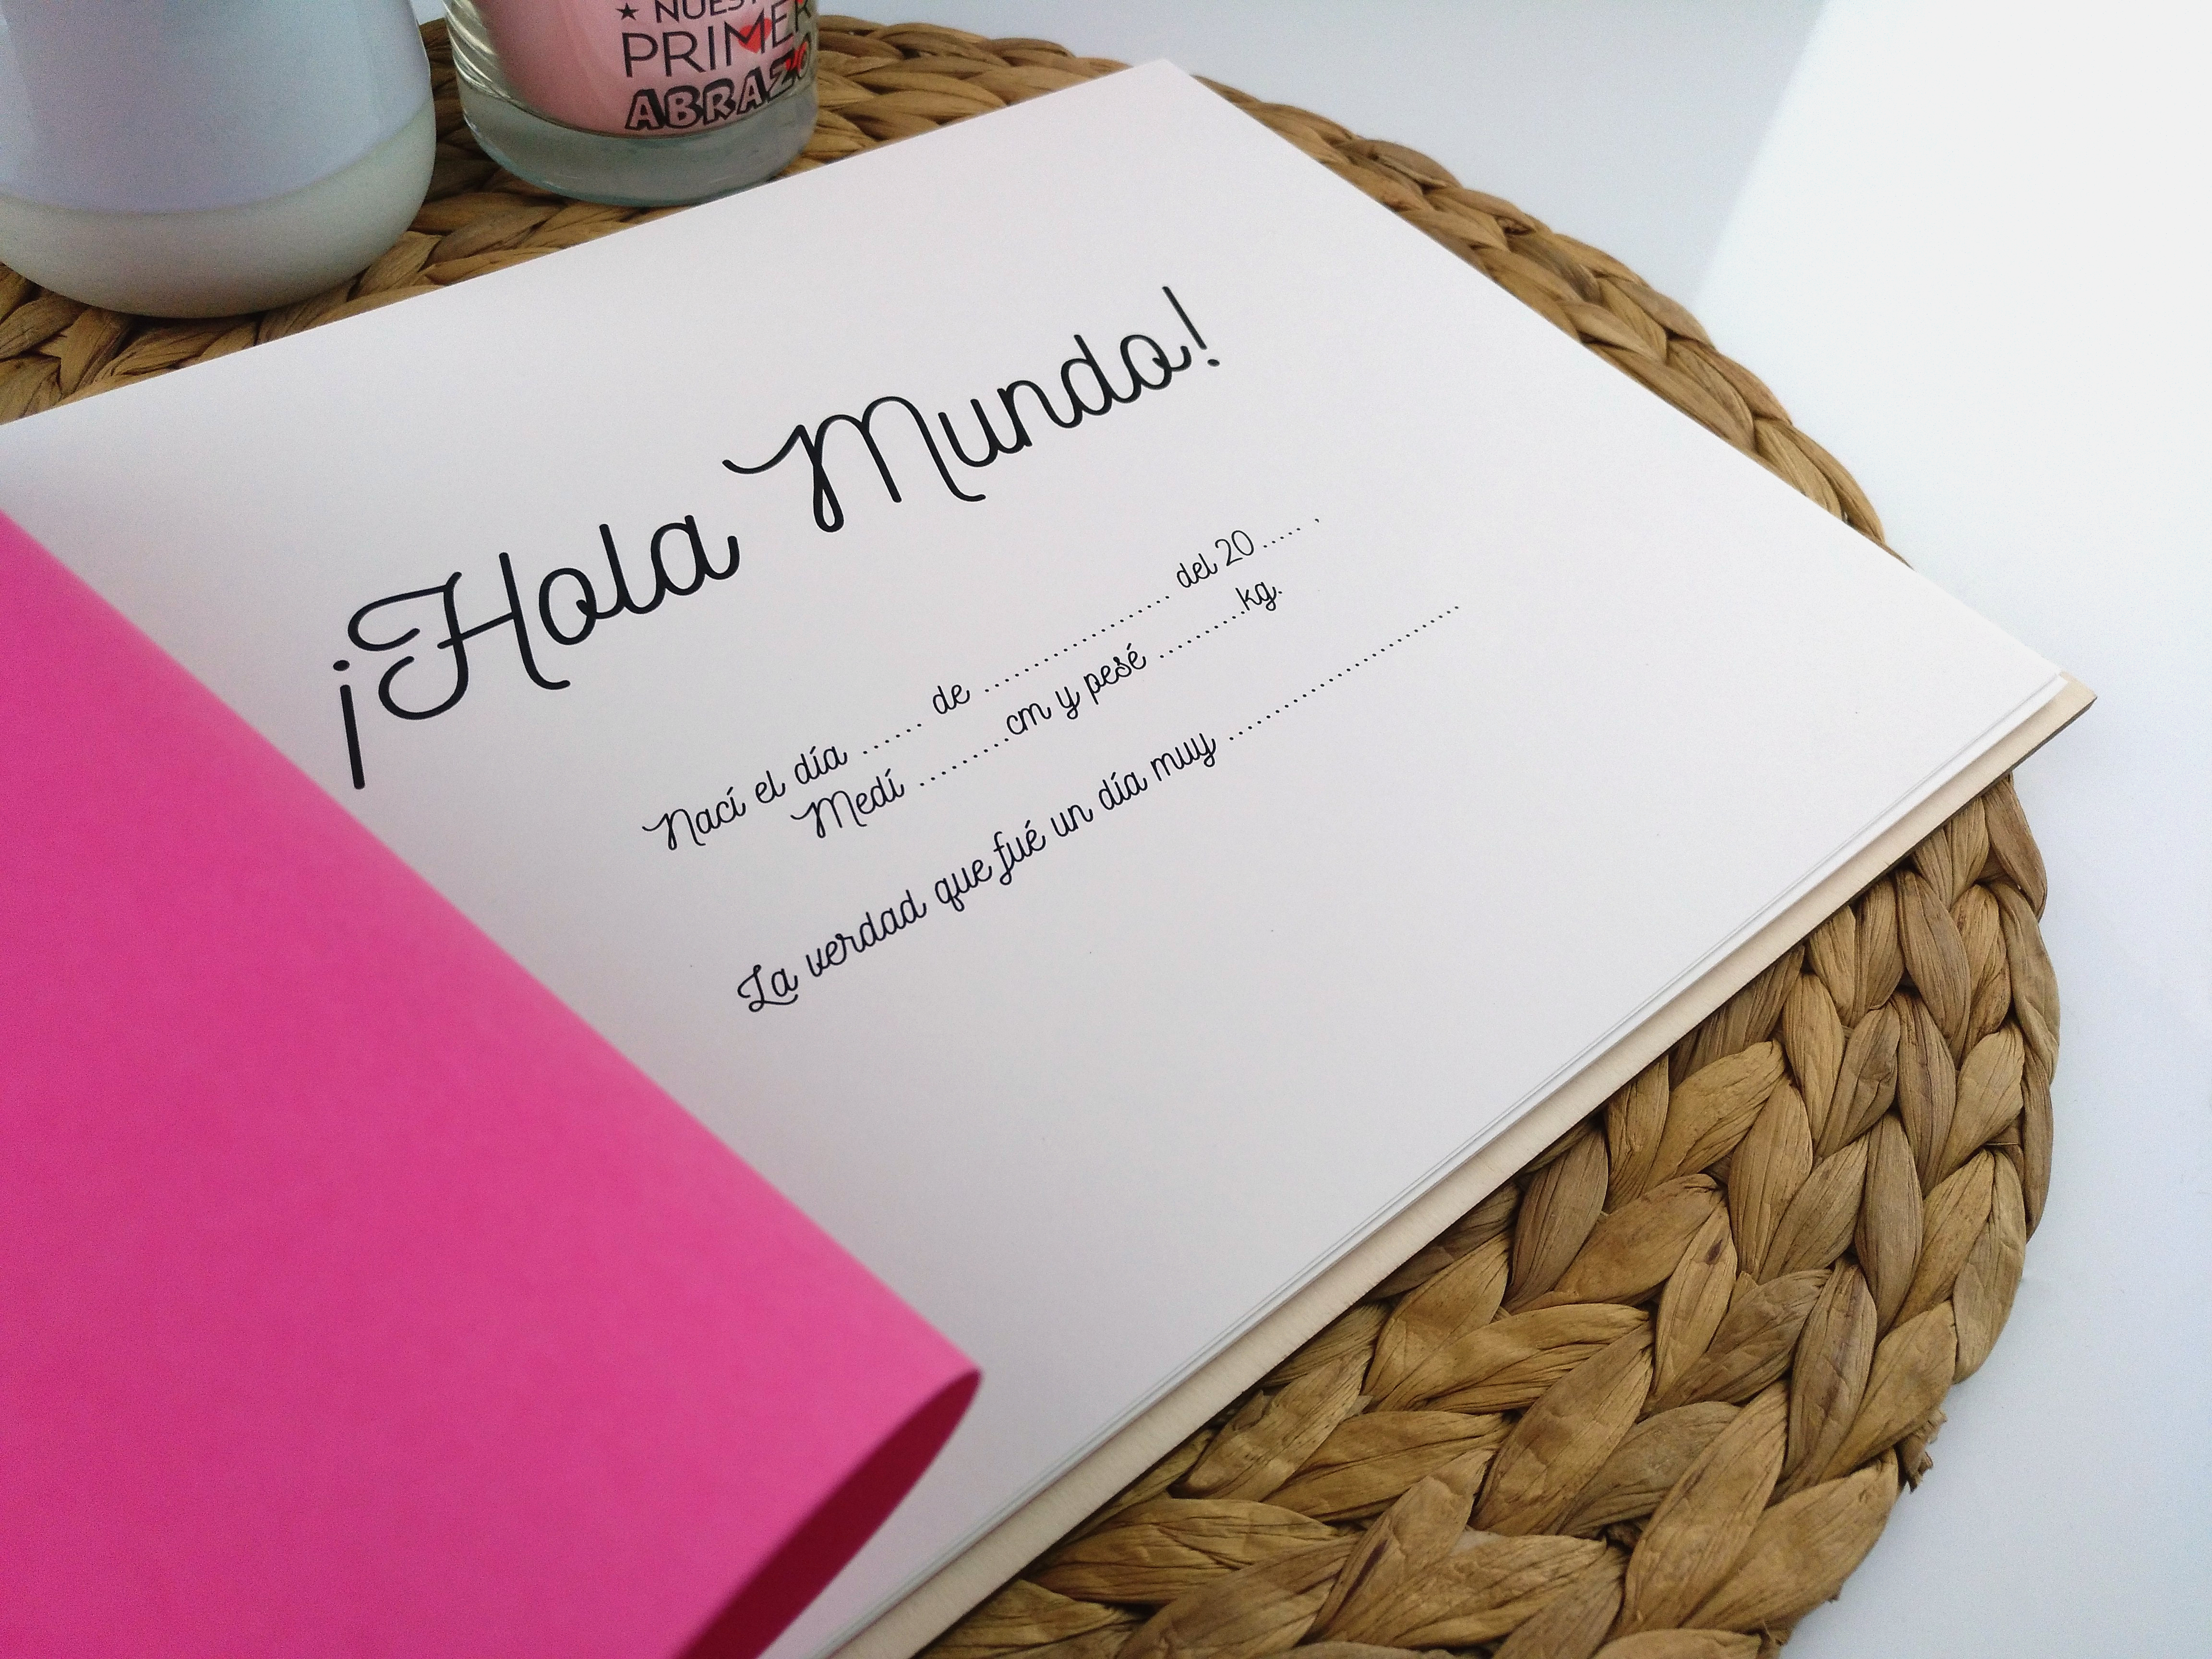 ★ NUES
PRIMER
ABRAZO
¡Hola Mundo!
Nací el día ....... de ........................... del 20 ..... ,
Medí ..........cm y pesé ..........kg.
La verdad que fué un día muy ................................